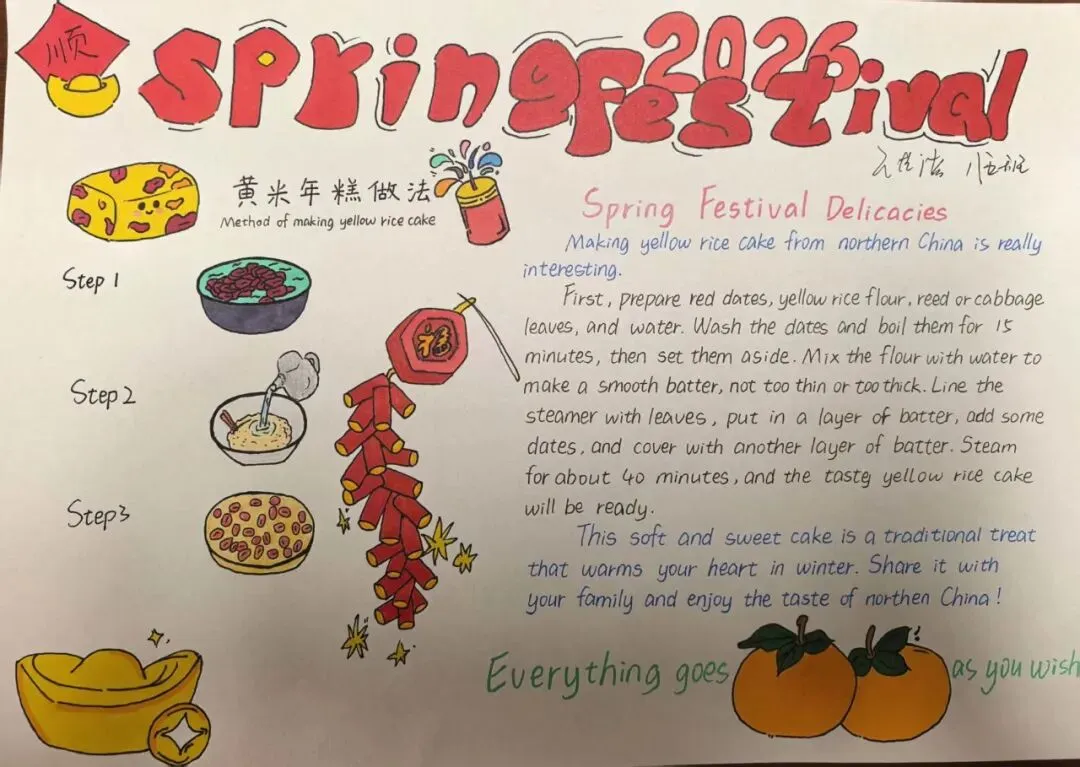 顺
Spring Festival 2026
黄米年糕做法
Method of making yellow rice cake
Step 1
Step 2
Step3
福
Spring Festival Delicacies
Making yellow rice cake from northern China is really
interesting.
First, prepare red dates, yellow rice flour, reed or cabbage
leaves, and water. Wash the dates and boil them for 15
minutes, then set them aside. Mix the flour with water to
make a smooth batter, not too thin or too thick. Line the
steamer with leaves, put in a layer of batter, add some
dates, and cover with another layer of batter. Steam
for about 40 minutes, and the tasty yellow rice cake
will be ready.
This soft and sweet cake is a traditional treat
that warms your heart in winter. Share it with
your family and enjoy the taste of northen China!
Everything goes as you wish